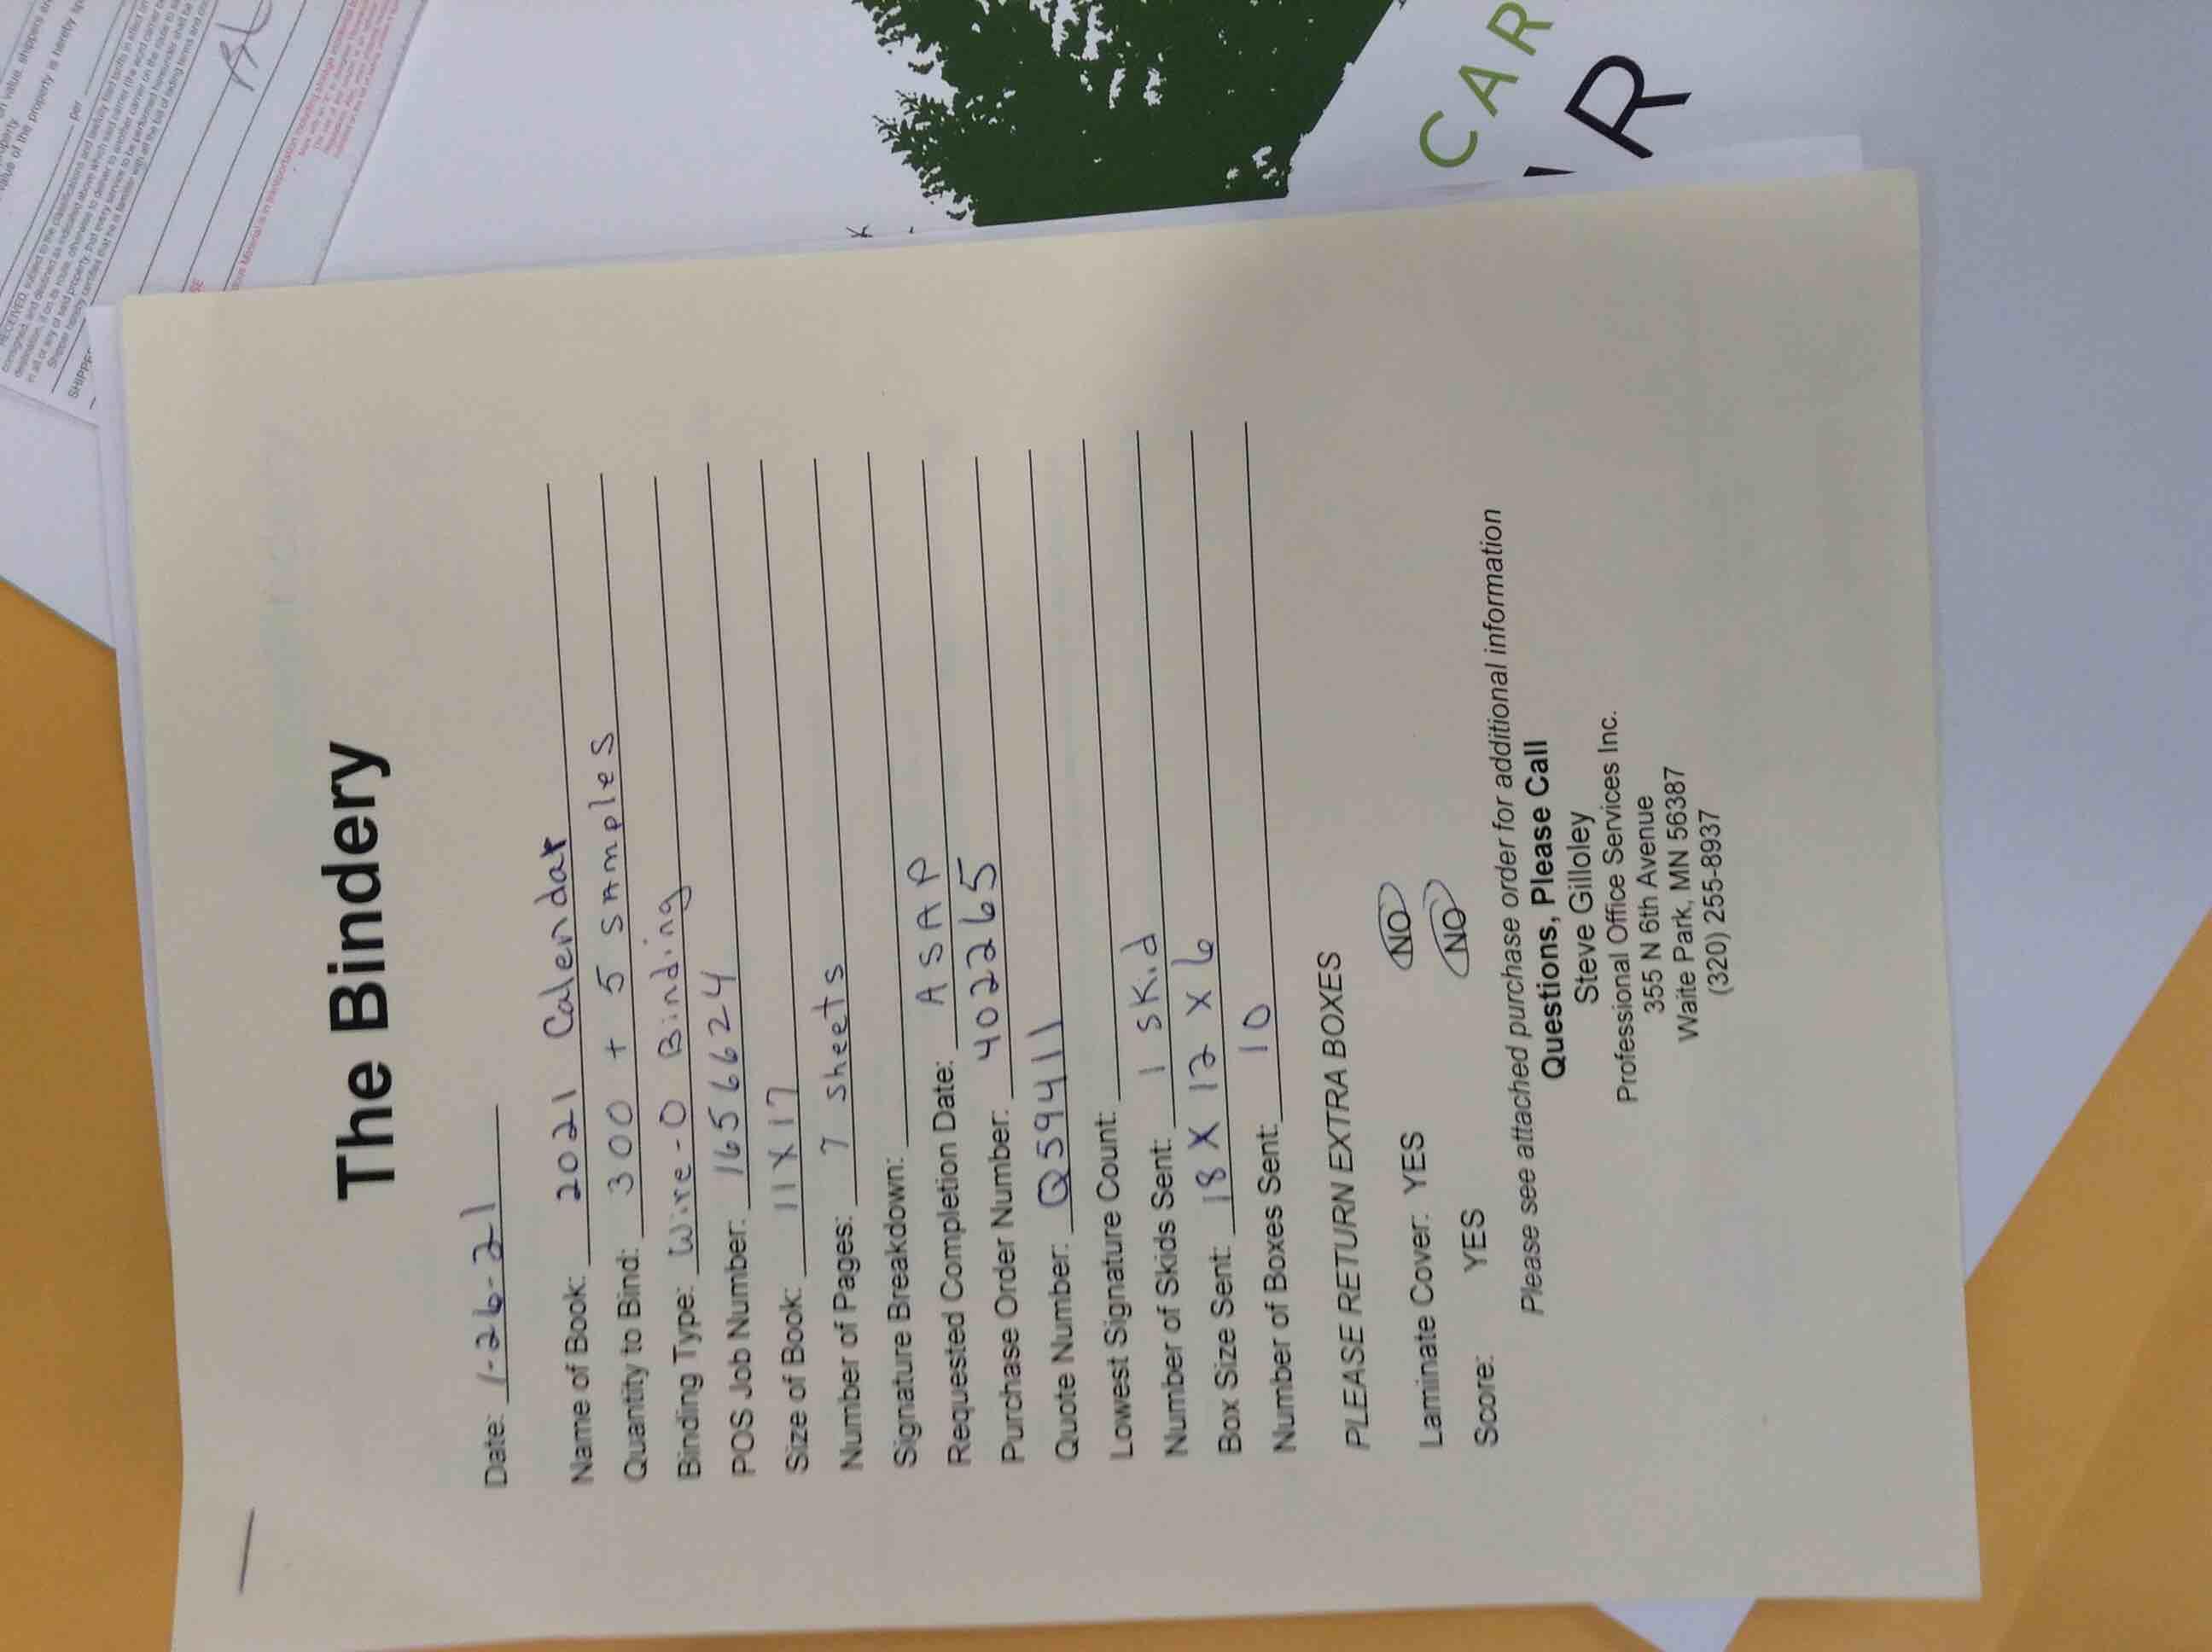 The Bindery
Date: 1-26-21
Name of Book: 2021 Calendar
Quantity to Bind: 300 + 5 samples
Binding Type: Wire-O Binding
POS Job Number: 1656624
Size of Book: 11 X 17
Number of Pages: 7 sheets
Signature Breakdown:
Requested Completion Date: ASAP
Purchase Order Number: 402265
Quote Number: Q59411
Lowest Signature Count:
Number of Skids Sent: 1 skid
Box Size Sent: 18 X 12 X 6
Number of Boxes Sent: 10
PLEASE RETURN EXTRA BOXES
Laminate Cover: YES NO
Score: YES NO
Please see attached purchase order for additional information
Questions, Please Call
Steve Gilloley
Professional Office Services Inc.
355 N 6th Avenue
Waite Park, MN 56387
(320) 255-8937
CAR
R
per